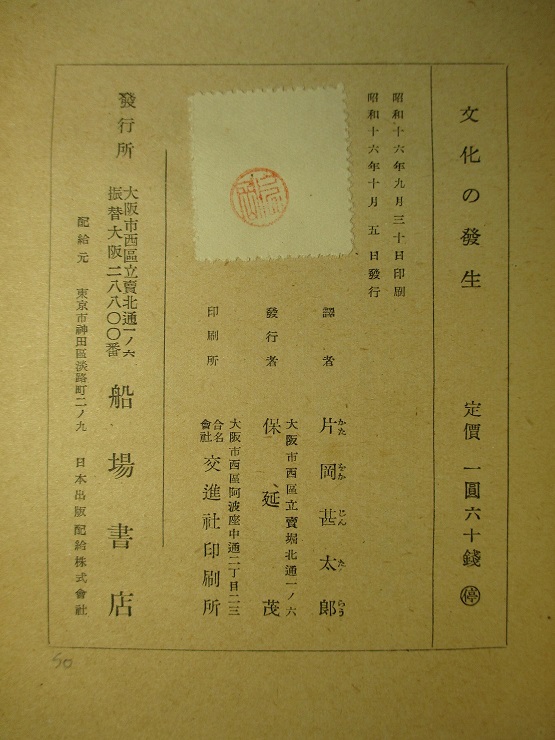 文化の發生
定價 一圓六十錢 停
昭和十六年九月三十日印刷
昭和十六年十月 五 日發行
譯者 片岡甚太郎
かた をか じん た らう
大阪市西區立賣堀北通一ノ六
發行者 保延 茂
大阪市西區阿波座中通二丁目二三
印刷所 合名會社 交進社印刷所
發行所 大阪市西區立賣北通一ノ六
振替大阪二八八〇〇番
船場書店
配給元 東京市神田區淡路町二ノ九 日本出版配給株式會社
50